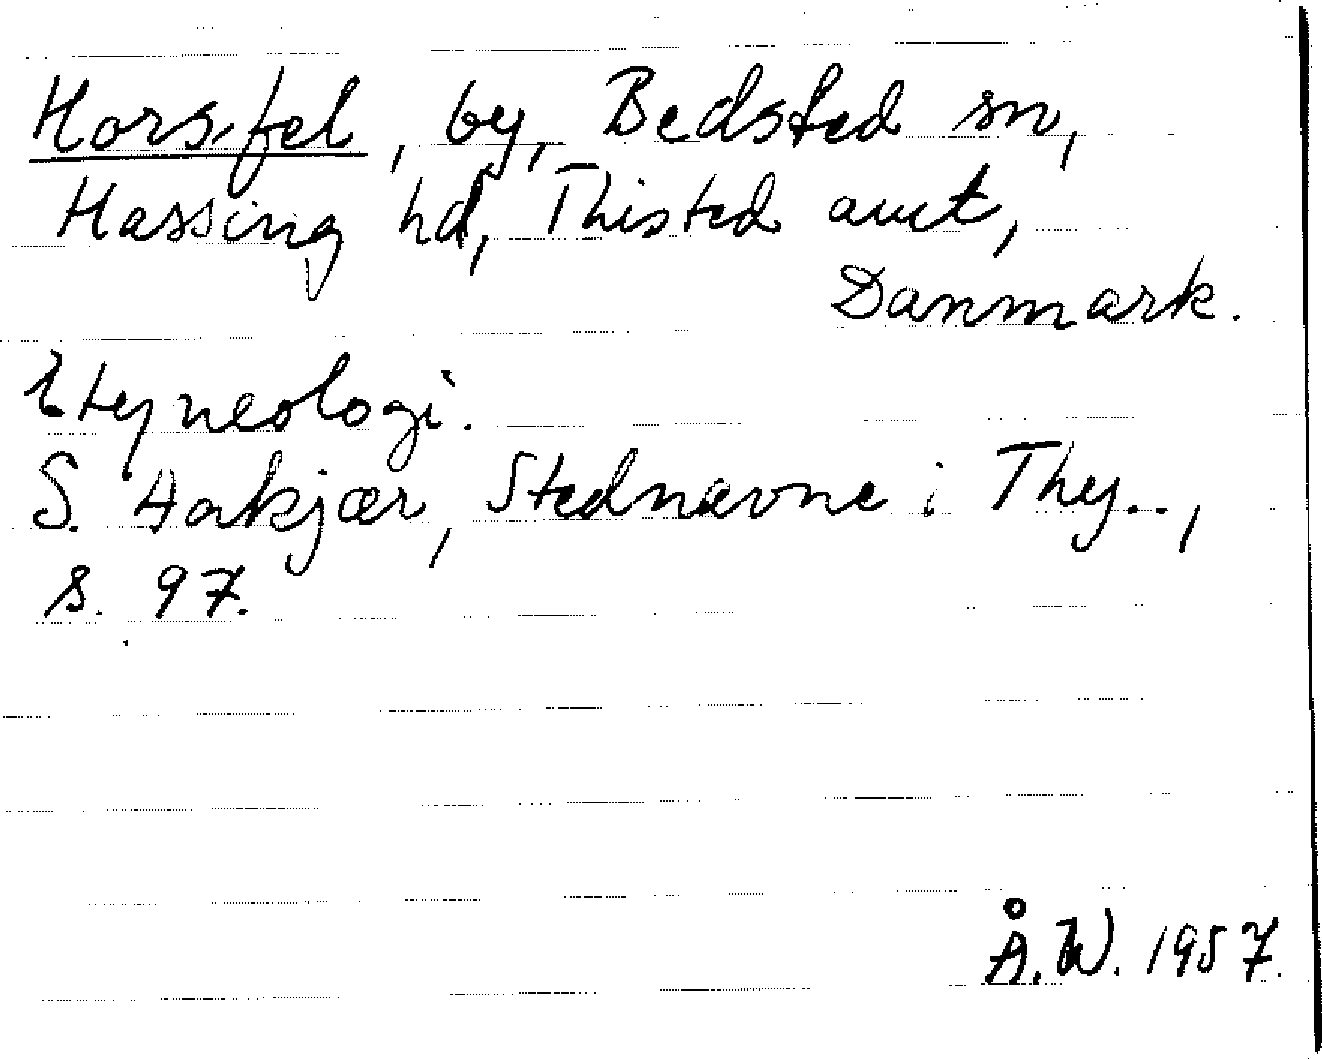 Horsfel, by, Bedsted sn,
Hassing hd, Thisted amt,
Danmark.
Etymologi.
S. Aakjær, Stednavne i Thy..,
s. 97.
Å.W. 1957.